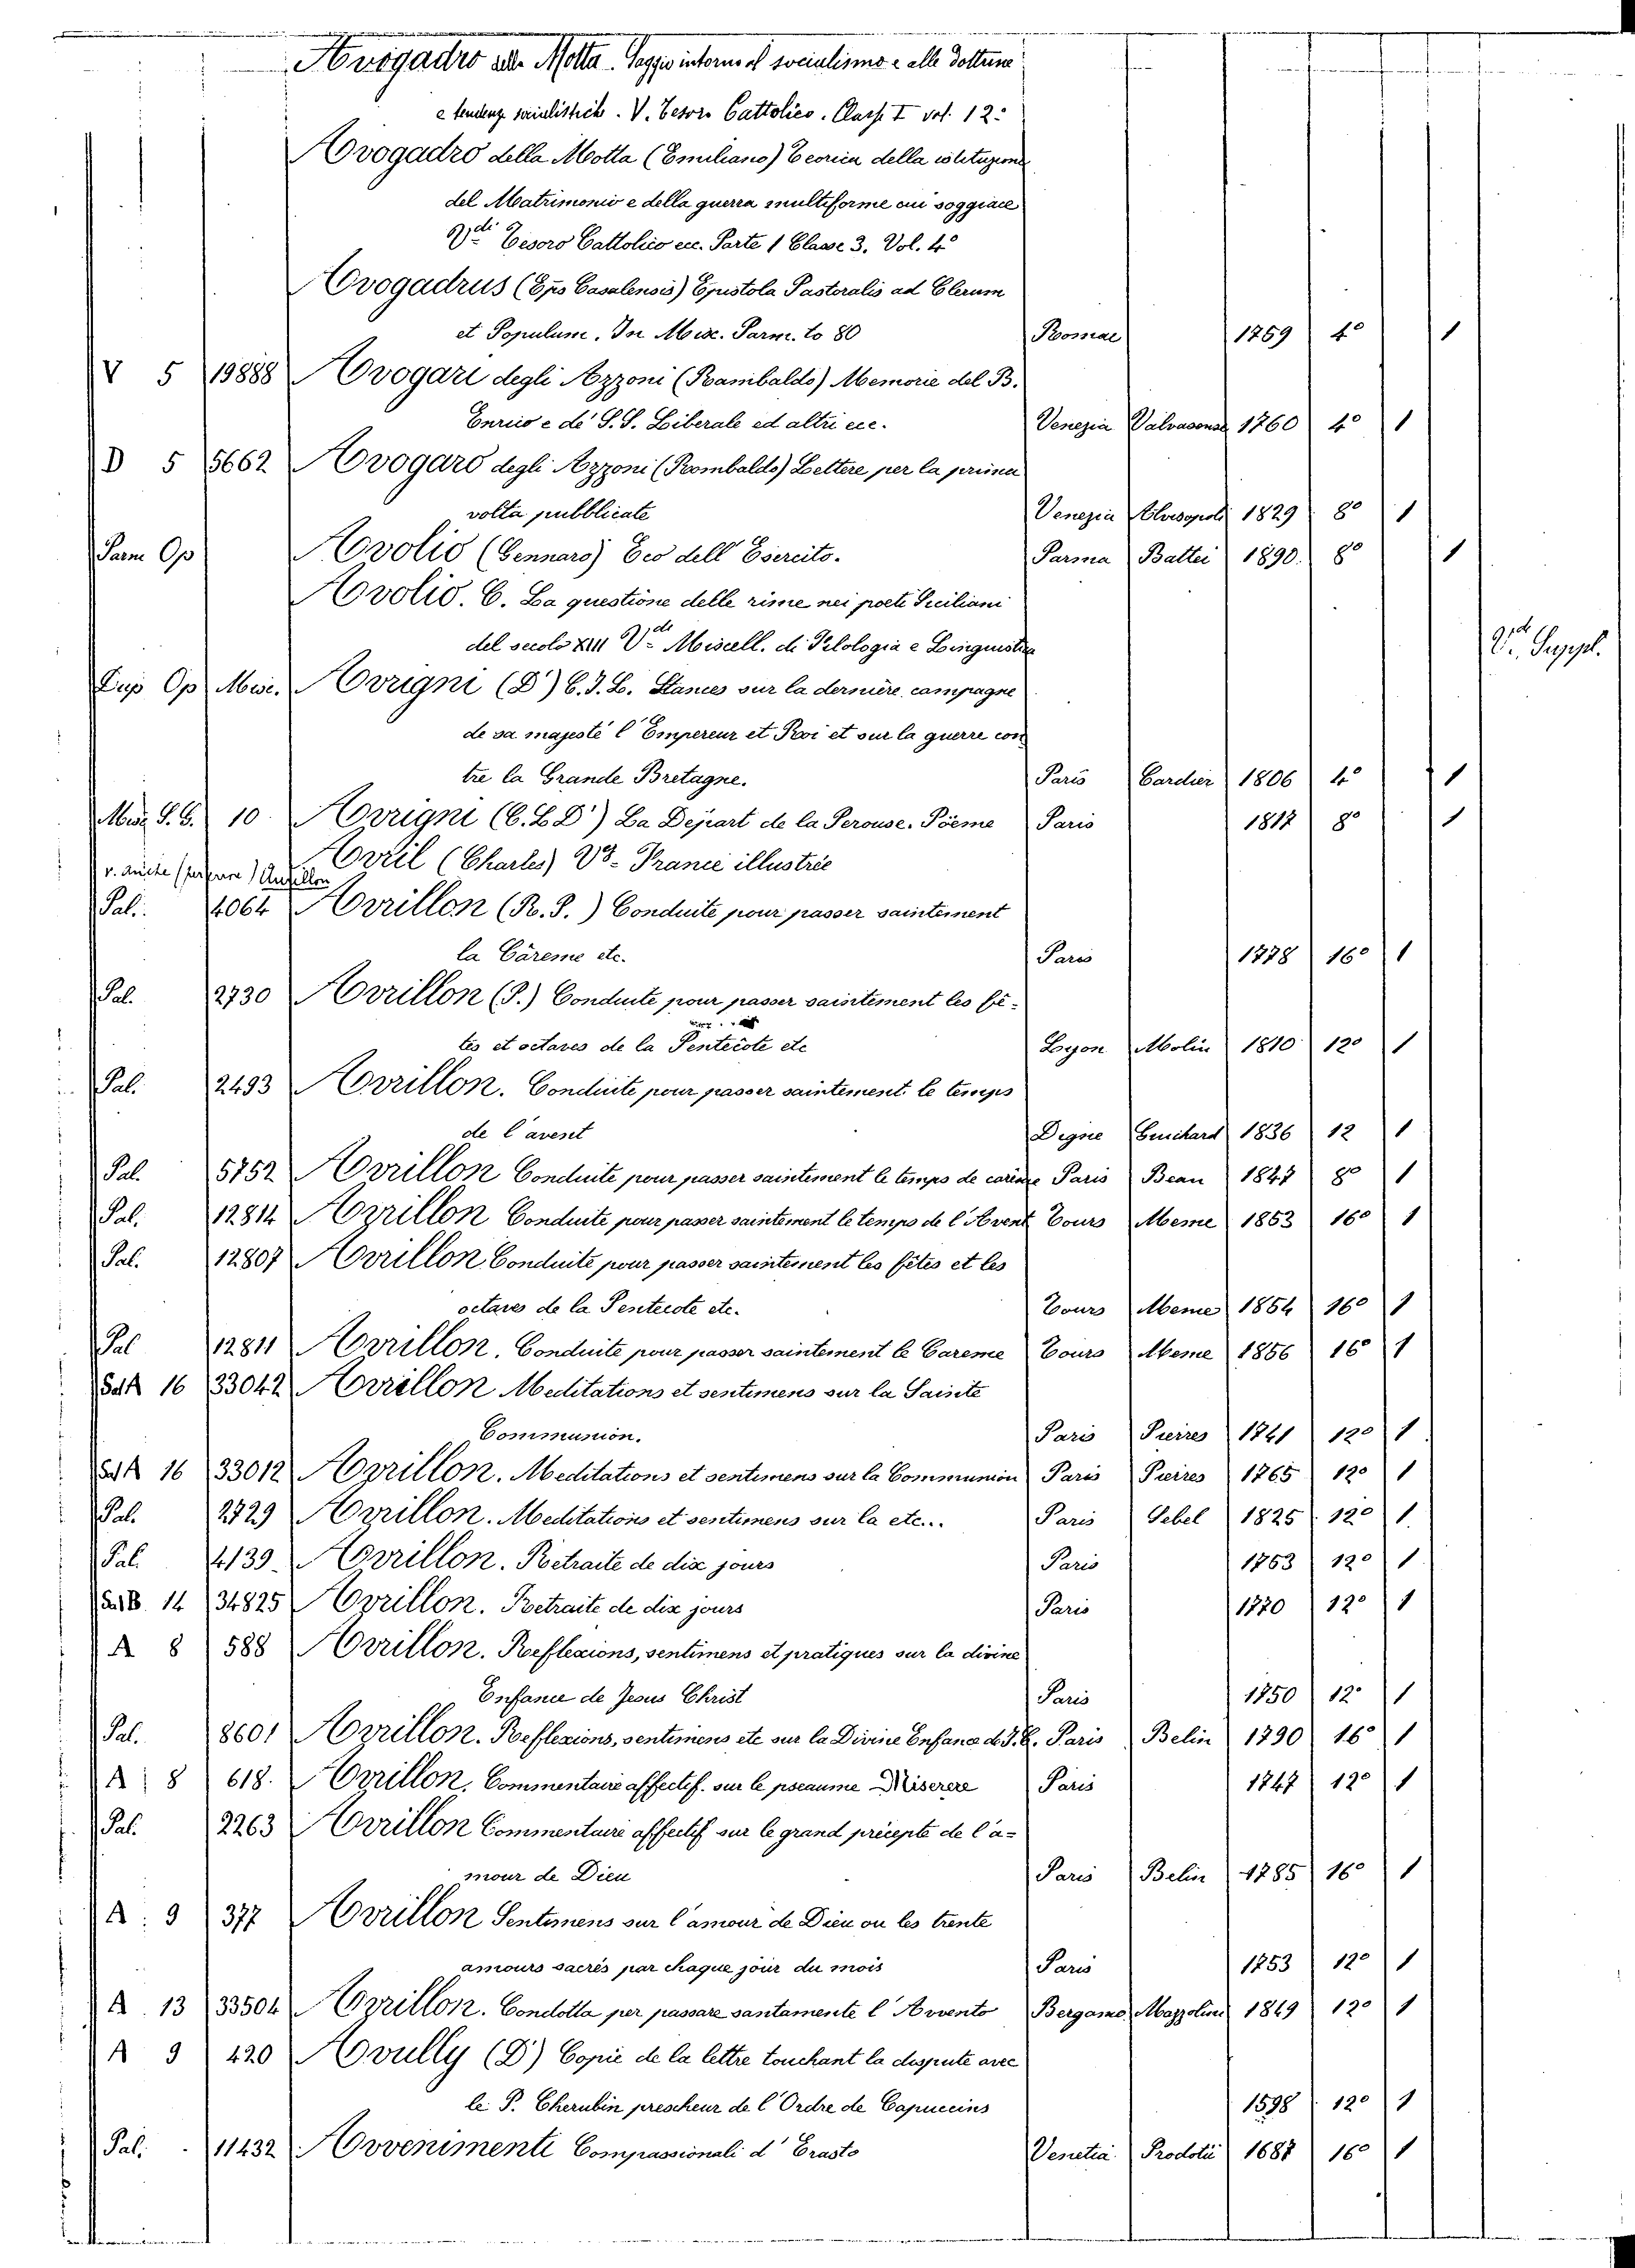 Avogadro della Motta. Saggio intorno al socialismo e alle dottrine
e tendenze socialistiche. V. Tesoro Cattolico. Class. I vol. 12:
Avogadro della Motta (Emiliano) Teorica della istituzione
del Matrimonio e della guerra multiforme cui soggiace
V.di Tesoro Cattolico ecc. Parte 1 Classe 3. Vol. 4º
Avogadrus (Eps Casalensis) Epistola Pastoralis ad Clerum
et Populum. In Misc. Parm. to 80 Romae 1769 4º 1
V 5 19888 Avogari degli Azzoni (Rambaldo) Memorie del B.
Enrico e de' S.S. Liberale ed altri ecc. Venezia Valvasense 1760 4º 1
D 5 5662 Avogaro degli Azzoni (Rombaldo) Lettere per la prima
volta pubblicate Venezia Alvisopoli 1829 8º 1
Parm Op Avolio (Gennaro) Eco dell' Esercito. Parma Battei 1890. 8º 1
Avolio. C. La questione delle rime nei poeti Siciliani
del secolo XIII V.de Miscell. di Filologia e Linguistica V.de Suppl.
Dup Op Misc. Avrigni (D') C. J. L. Stances sur la dernière campagne
de sa majesté l'Empereur et Roi et sur la guerre con
tre la Grande Bretagne. Paris Cardier 1806 4º 1
Misc S. G. 10 Avrigni (C. L D') La Depart de la Perouse. Poeme Paris 1817 8º 1
Avril (Charles) V.s- France illustrée
v. anche Anfillon
Pal. 4064 Avrillon (R. P.) Conduite pour passer saintement
la Câreme etc. Paris 1778 16º 1
Pal. 2730 Avrillon (P.) Conduite pour passer saintement les fê-
tes et octaves de la Pentecote etc Lyon Molin 1810 12º 1
Pal. 2493 Avrillon. Conduite pour passer saintement le temps
de l'avent Digne Guichard 1836 12 1
Pal. 5752 Avrillon Conduite pour passer saintement le temps de carême Paris Beau 1847 8º 1
Pal. 12814 Avrillon Conduite pour passer saintement le temps de l'Avent Tours Meme 1853 16º 1
Pal. 12807 Avrillon Conduite pour passer saintement les fêtes et les
octaves de la Pentecote etc. Tours Meme 1854 16º 1
Pal 12811 Avrillon. Conduite pour passer saintement le Careme Tours Meme 1856 16º 1
Sal A 16 33042 Avrillon Meditations et sentimens sur la Sainte
Communion. Paris Pierres 1741 12º 1
Sal A 16 33012 Avrillon. Meditations et sentimens sur la Communion Paris Pierres 1765 12º 1
Pal. 2729 Avrillon. Meditations et sentimens sur la etc... Paris Lebel 1825 12º 1.
Pal. 4139. Avrillon. Retraite de dix jours Paris 1763 12º 1
Sal B. 14 34825 Avrillon. Retraite de dix jours Paris 1770 12º 1
A 8 588 Avrillon. Reflexions, sentimens et pratiques sur la divine
Enfance de Jesus Christ Paris 1750 12º 1
Pal. 8601 Avrillon. Reflexions, sentimens etc sur la Divine Enfance de J. C. Paris Belin 1790 16º 1
A 8 618. Avrillon. Commentaire affectif. sur le pseaume Miserere Paris 1747 12º 1
Pal. 2263 Avrillon Commentaire affectif sur le grand précepte de l'a-
mour de Dieu Paris Belin 1785 16º 1
A. 9 377 Avrillon Sentimens sur l'amour de Dieu ou les trente
amours sacrés par chaque jour du mois Paris 1753 12º 1
A. 13 33504 Avrillon. Condotta per passare santamente l'Avvento Bergamo Mazzoleni 1849 12º 1
A 9 420 Avully (D') Copie de la lettre touchant la dispute avec
le P. Cherubin prescheur de l'Ordre de Capuccins 1598 12º 1
Pal. 11432 Avvenimenti Compassionali d'Erasto Venetia Prodotti 1687 16º 1